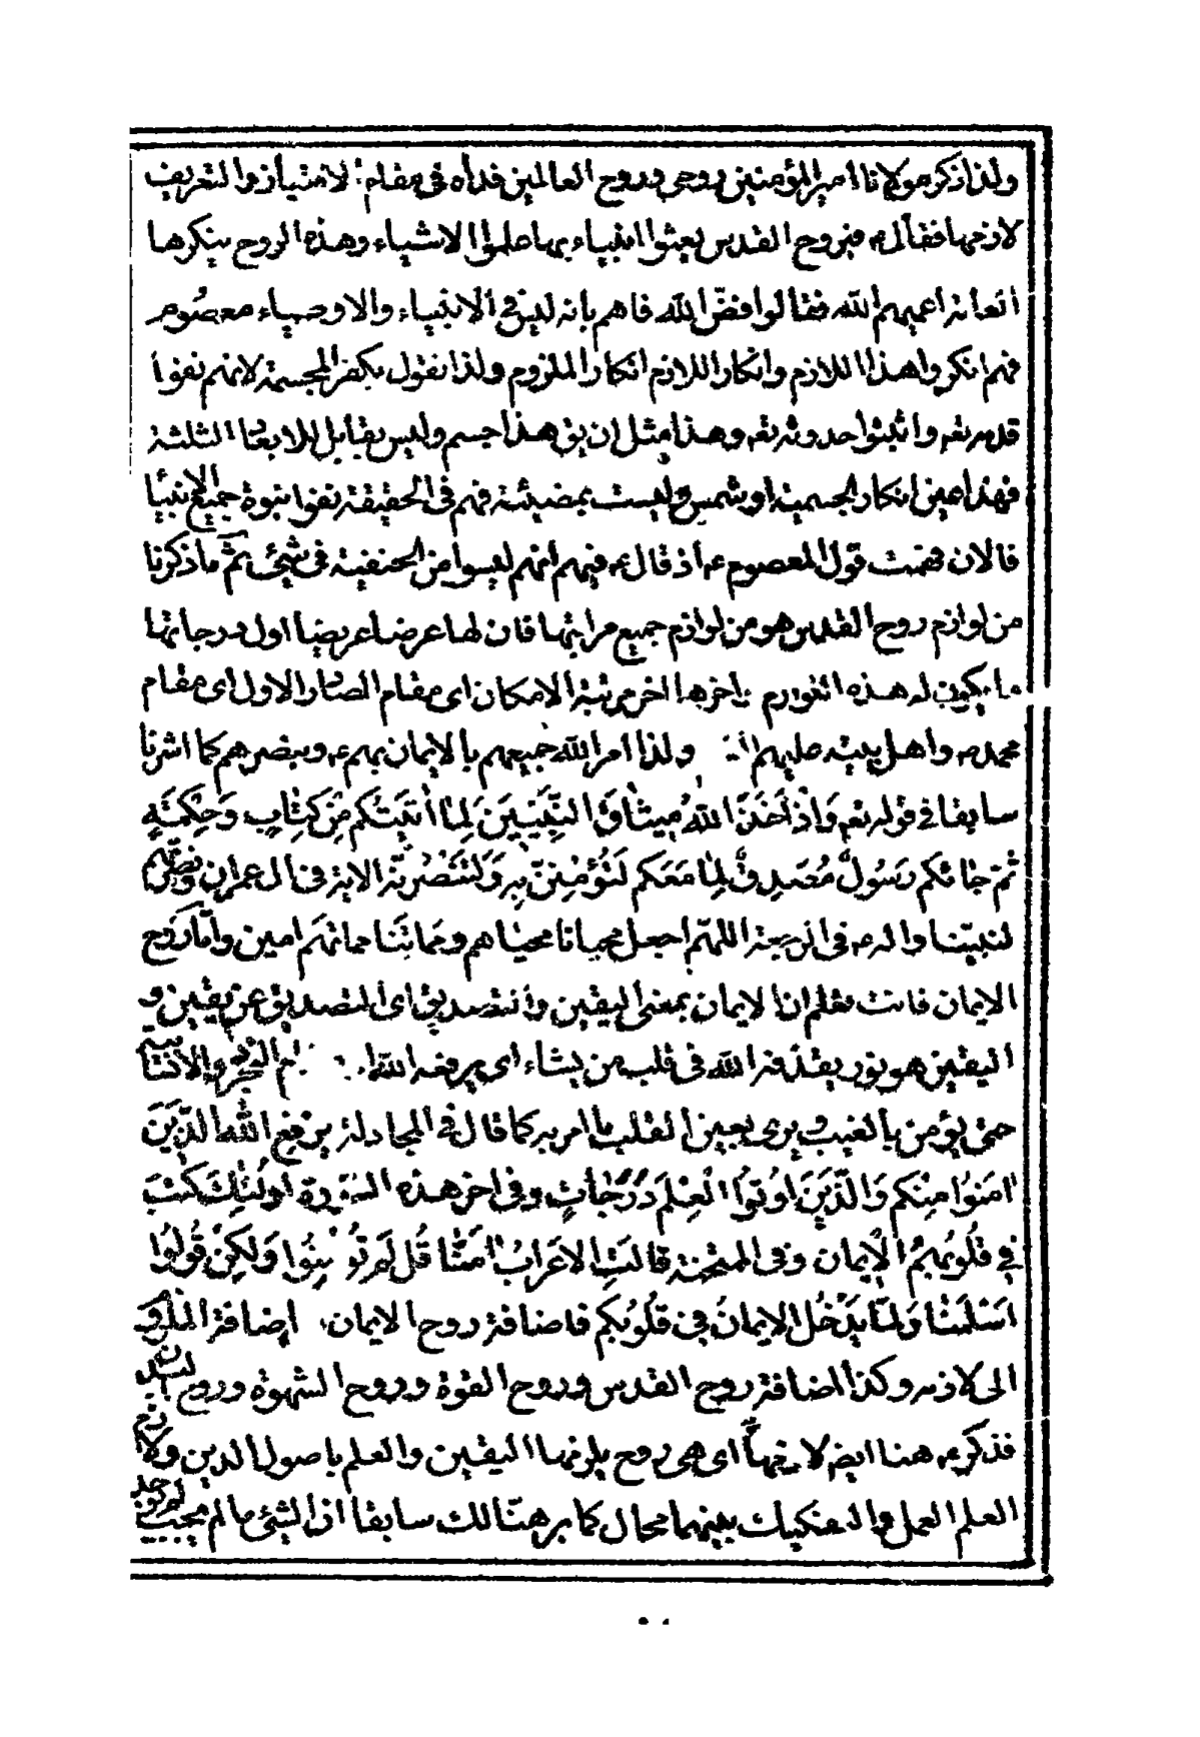 ولذا ذكر مولانا امير المؤمنين روحى وروح العالمين فداه فى مقام الامتياز والتعريف
لازمها فقال ع فبروح القدس بعثوا انبياء بها علموا الاشياء وهذه الروح ينكرها
العامة اعميهم الله فقالوا فض الله فاهم بانه ليس فى الانبياء والاوصياء معصوم
فهم انكروا هذا اللازم وانكار اللازم انكار الملزوم ولذا نقول بكفر المجسمة لانهم نفوا
قدمه تعه واثبتوا حدوثه تعه وهذا مثل ان يق هذا جسم وليس بقابل للابعاد الثلثة
فهذا عين انكار الجسمية او شمس وليست بمضيئة فهم فى الحقيقة نفوا نبوة جميع الانبياء
فالان فهمت قول المعصوم ع اذ قال ع فيهم انهم ليسوا من الحنفية فى شيئ ثم ما ذكرنا
من لوازم روح القدس هو من لوازم جميع مراتبها فان لها عرضا عريضا اول درجاتها
ما يكون له هذه اللوازم واخرها اخر مرتبة الامكان اى مقام الصادر الاول اى مقام
محمد ص واهل بيته عليهم ولذا امر الله جميعهم بالايمان بهم ع وبنصرهم كما اشرنا
سابقا فى قوله تعه وَاِذْ اَخَذَ اللهُ مِيثاقَ النَّبِيّينَ لَما اٰتَيْتُكُم مِن كِتابٍ وَحِكمَةٍ
ثُمّ جائكُم رَسُولٌ مُصَدِقٌ لِما مَعَكم لَتُؤمِنُنّ بِهِ وَلَتَنْصُرُنّهُ الاية فى ال عمران ونصرتهم
لنبيّنا واله ع فى الرجعة اللهم اجعل محيانا محياهم ومماتنا مماتهم امين وامّا روح
الايمان فانت تعلم ان الايمان بمعنى اليقين والتصديق اى التصديق عن يقين و
اليقين هو نور يقذفه الله فى قلب من يشاء اى يرفعه الله
حتى يؤمن بالغيب ويرى بعين القلب ما امر به كما قال فى المجادلة يرفع الله الذين
امَنوا مِنكم وَالّذينَ اوتوُا الْعِلمَ دَرَجاتٍ وفى اخر هذه السورة اولئك كتب
فى قُلوُبهِمُ الْايمان وفى الممتحنة قالَتِ الاعَرابُ امَنّا قُل لَم تُؤْمِنُوا وَلكِنْ قُولوُا
اَسْلَمْنا وَلمّا يَدْخُل الايمانُ فى قُلوُبِكم فاضافة روح الايمان اضافة الملزوم
الى لازمه وكذا اضافة روح القدس وروح القوة وروح الشهوة وروح البدن
فذكر ع هنا ايض لازمها اى هى روح يلزمها اليقين والعلم باصول الدين ولازم
العلم العمل والتفكيك بينهما محال كما برهنّا لك سابقا اذ الشئ ما لم يجب لم يوجد